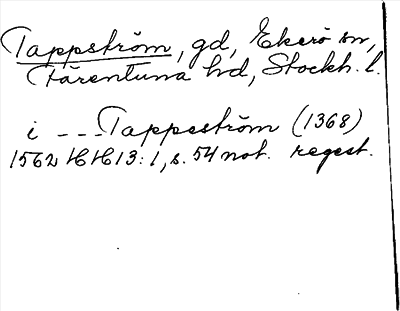 Tappström, gd, Ekerö sn,
Färentuna hd, Stockh. l.
i - - - Tappeström (1368)
1562 HH 13:1, s. 54 not. regest.